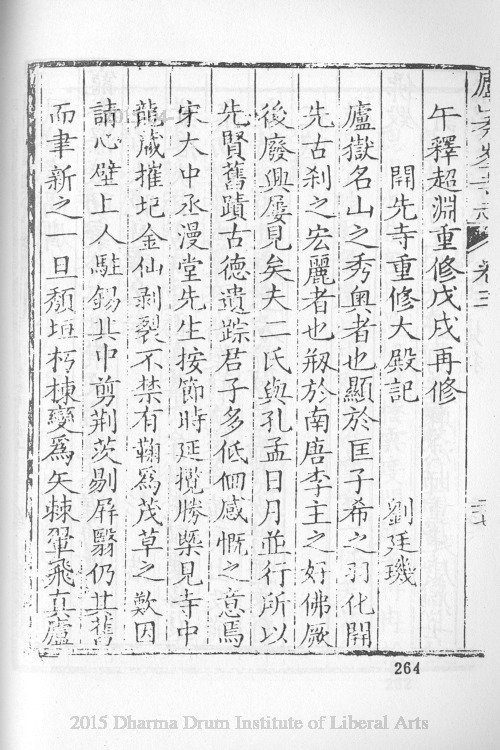 午釋超淵重修戊戌再修
開先寺重修大殿記
劉廷璣
廬嶽名山之秀奧者也顯於匡子希之羽化開
先古刹之宏麗者也剏於南唐李主之好佛厥
後廢興屢見矣夫二氏與孔孟日月並行所以
先賢舊蹟古德遺踪君子多低佪感慨之意焉
宋大中丞漫堂先生按節時延攬勝槩見寺中
龍藏摧圮金仙剥裂不禁有鞠爲茂草之歎因
請心壁上人駐錫其中剪荆茨剔屏翳仍其舊
而聿新之一旦頽垣朽棟變爲矢棘翬飛真廬
卷三
264
2015 Dharma Drum Institute of Liberal Arts